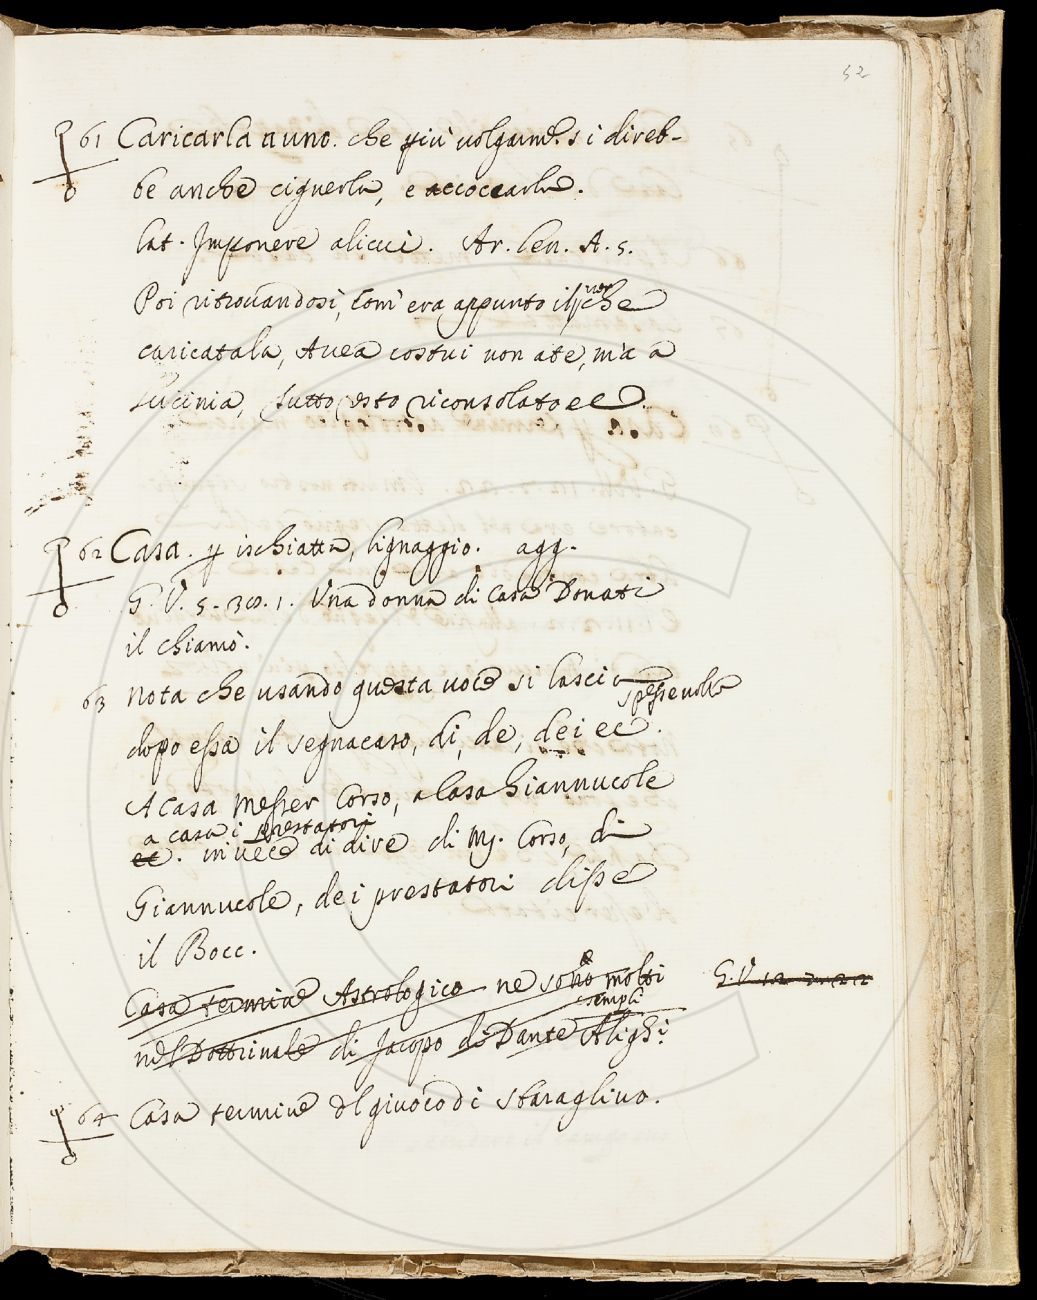 52
61 Caricarla a uno. che più volgarm.e si direb-
be anche cignerla, e accoccarla.
Lat. Imponere alicui. Ar. Len. A. 5.
Poi ritrovandosi, com' era appunto il ver che
caricata l'avea costui non a te, ma a
Licinia, tutto resto riconsolato ec.
62 Casa. p ischiatta, lignaggio. agg.
G. V. 5. 38. 1. Una donna di casa Donati
il chiamò.
63 Nota che usando questa voce si lascia spesse volte
dopo essa il segnacaso, di, de, dei ec.
A casa Messer Corso, a casa Giannucole
a casa i prestatori
ec. in vece di dire di M. Corso, di
Giannucole, dei prestatori disse
il Bocc.
Casa termine Astrologico ne sono molti esempli G. V. 12. 2. 22
nel Dottrinale di Jacopo di Dante Aligh.i
64 Casa termine del giuoco di sbaraglino.